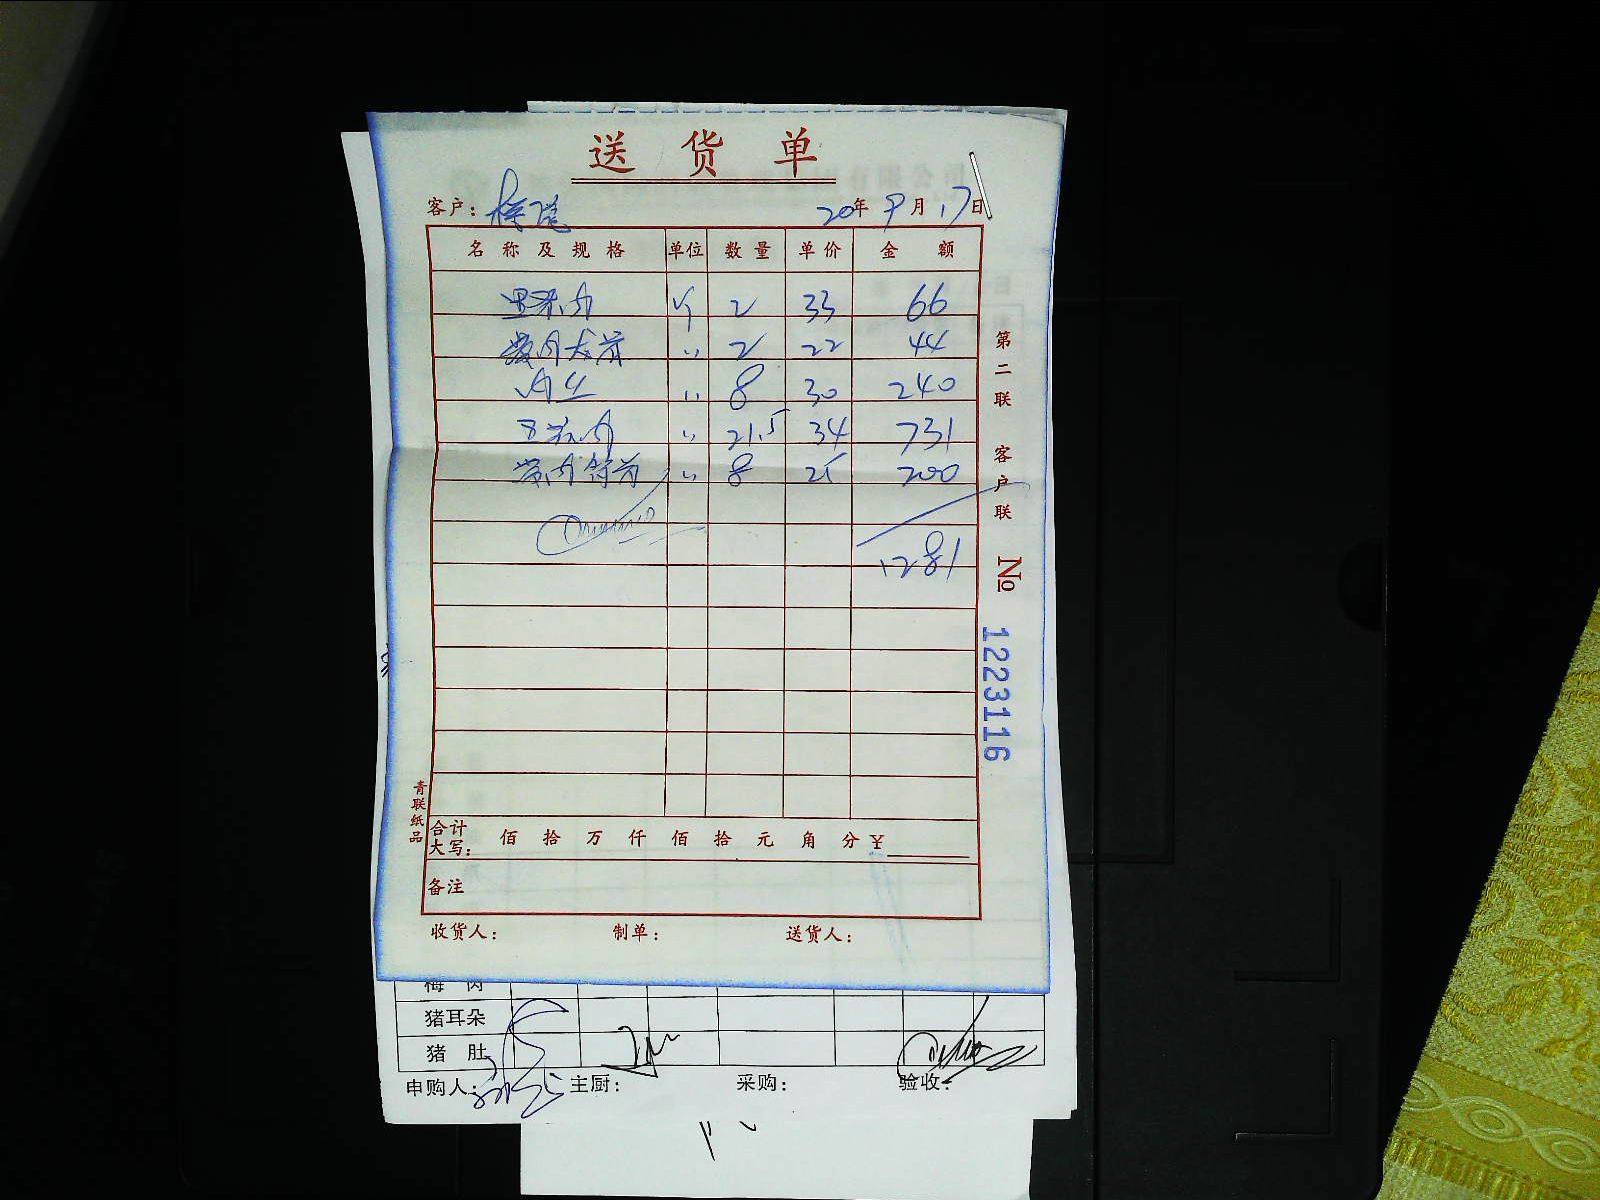 送货单
客户： 20年9月17日
名称及规格 单位 数量 单价 金额
里脊肉 斤 2 33 66
〃 2 22 44
肉丝 〃 8 30 240
五花肉 〃 21.5 34 731
〃 8 25 200
1281
合计大写： 佰 拾 万 仟 佰 拾 元 角 分 ¥
备注
收货人： 制单： 送货人：
第二联 客户联
No 1223116
青联纸品
梅肉
猪耳朵
猪肚
申购人： 主厨： 采购： 验收：